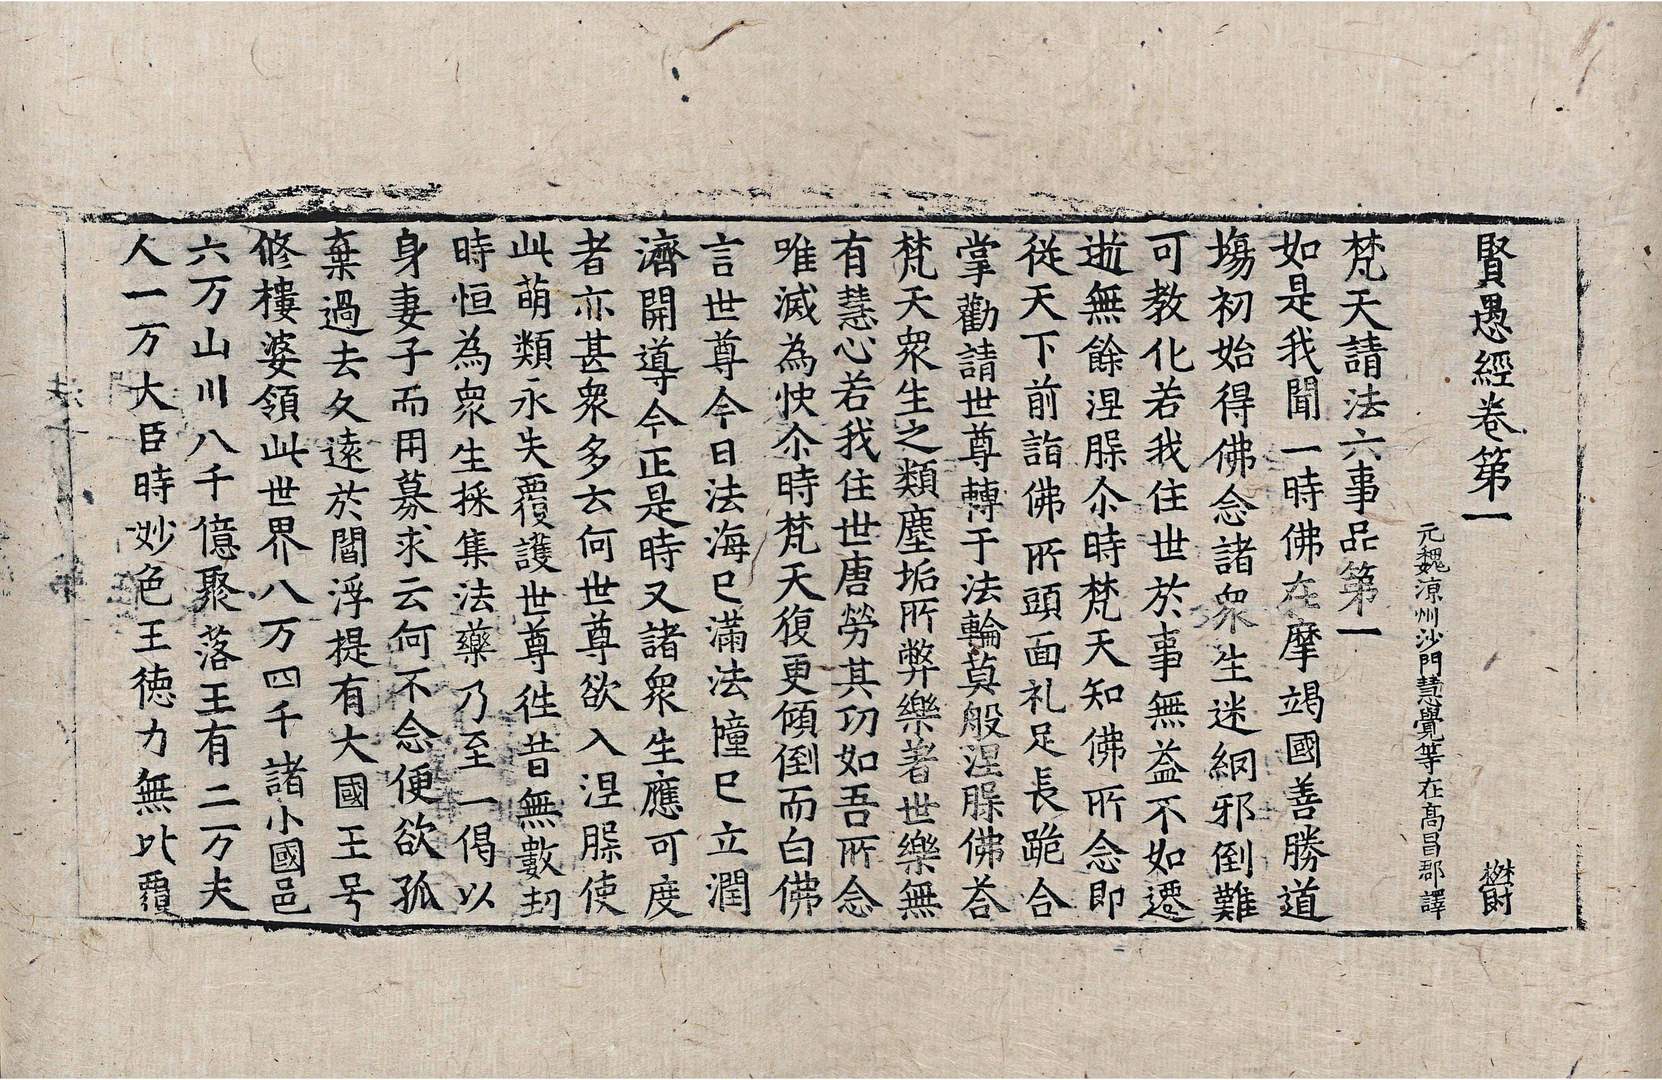 賢愚經卷第一
元魏涼州沙門慧覺等在高昌郡譯
梵天請法六事品第一
如是我聞一時佛在摩竭國善勝道
塲初始得佛念諸衆生迷網邪倒難
可教化若我住世於事無益不如遷
逝無餘涅槃尒時梵天知佛所念即
從天下前詣佛所頭面礼足長跪合
掌勸請世尊轉于法輪莫般涅槃佛荅
梵天衆生之類塵垢所弊樂著世樂無
有慧心若我住世唐勞其功如吾所念
唯滅為快尒時梵天復更傾倒而白佛
言世尊今日法海已滿法幢已立潤
濟開導今正是時又諸衆生應可度
者亦甚衆多云何世尊欲入涅槃使
此萌類永失覆護世尊徃昔無數劫
時恒為衆生採集法藥乃至一偈以
身妻子而用募求云何不念便欲孤
棄過去久遠於閻浮提有大國王号
修樓婆領此世界八万四千諸小國邑
六万山川八千億聚落王有二万夫
人一万大臣時妙色王徳力無比覆